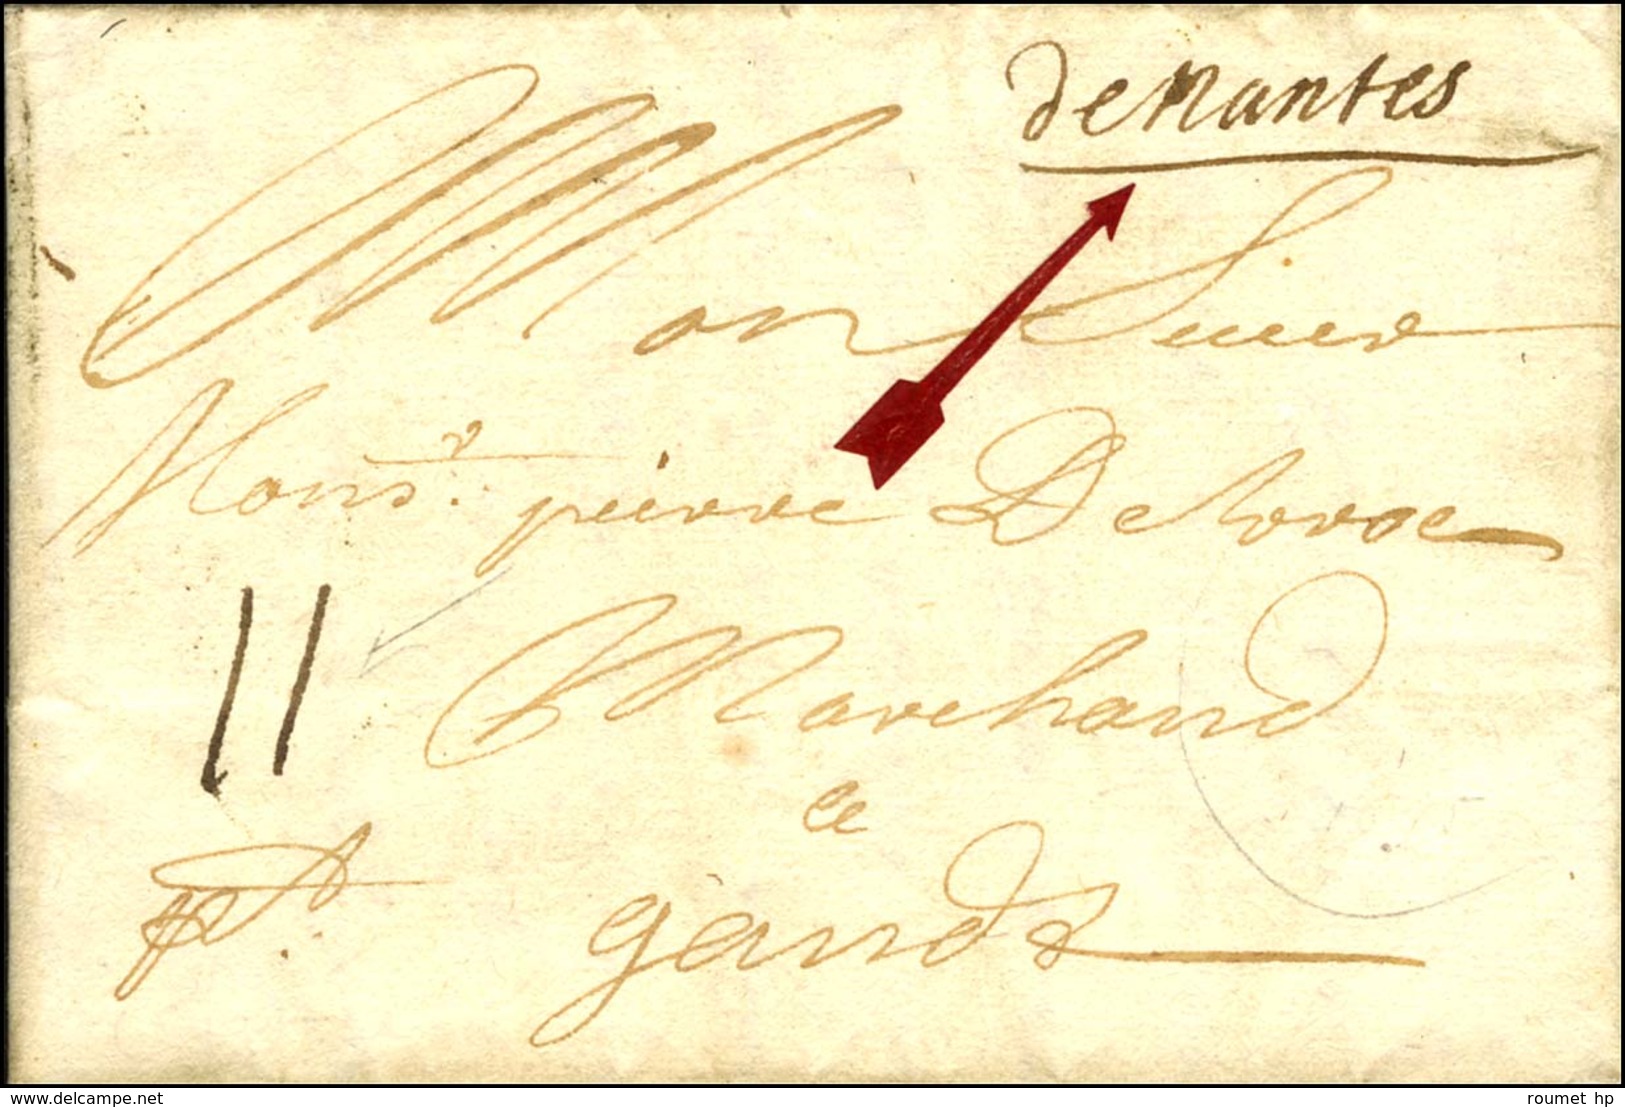 de Nantes
Monsieur
Mons.r pierre Delvroe
11
Marchand
a
pt.
gandt
www.delcampe.net
roumet hp